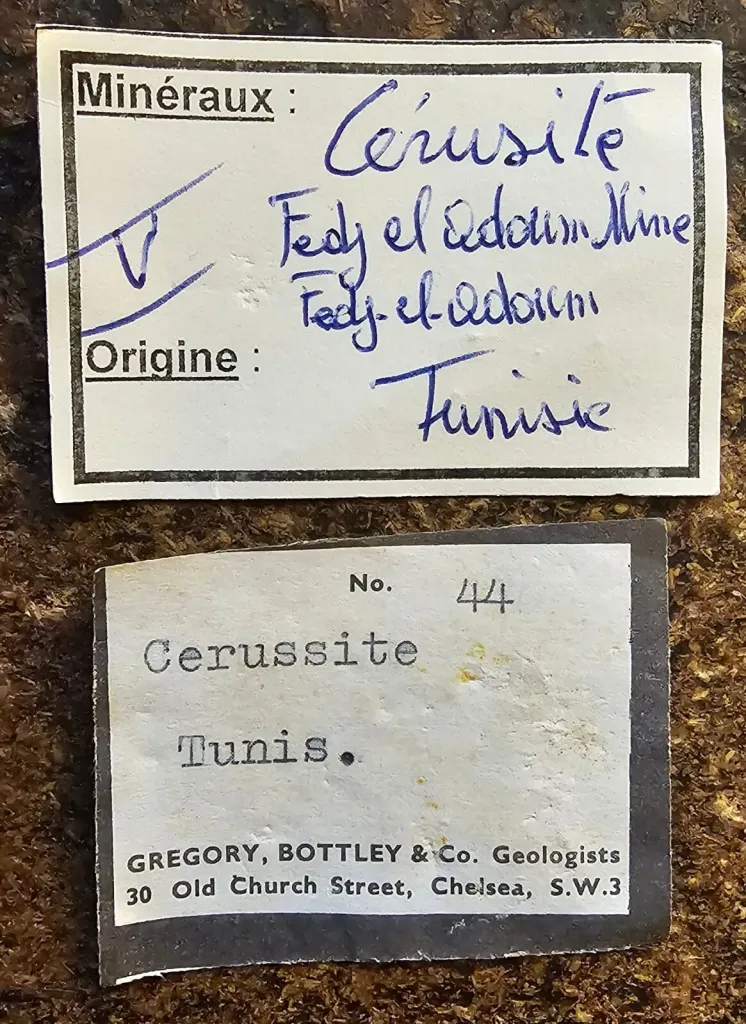 Minéraux :
Cérusite
V
Fedj el Adoum Mine
Fedj-el-Adoum
Origine :
Tunisie
No. 44
Cerussite
Tunis.
GREGORY, BOTTLEY & Co. Geologists
30 Old Church Street, Chelsea, S.W.3